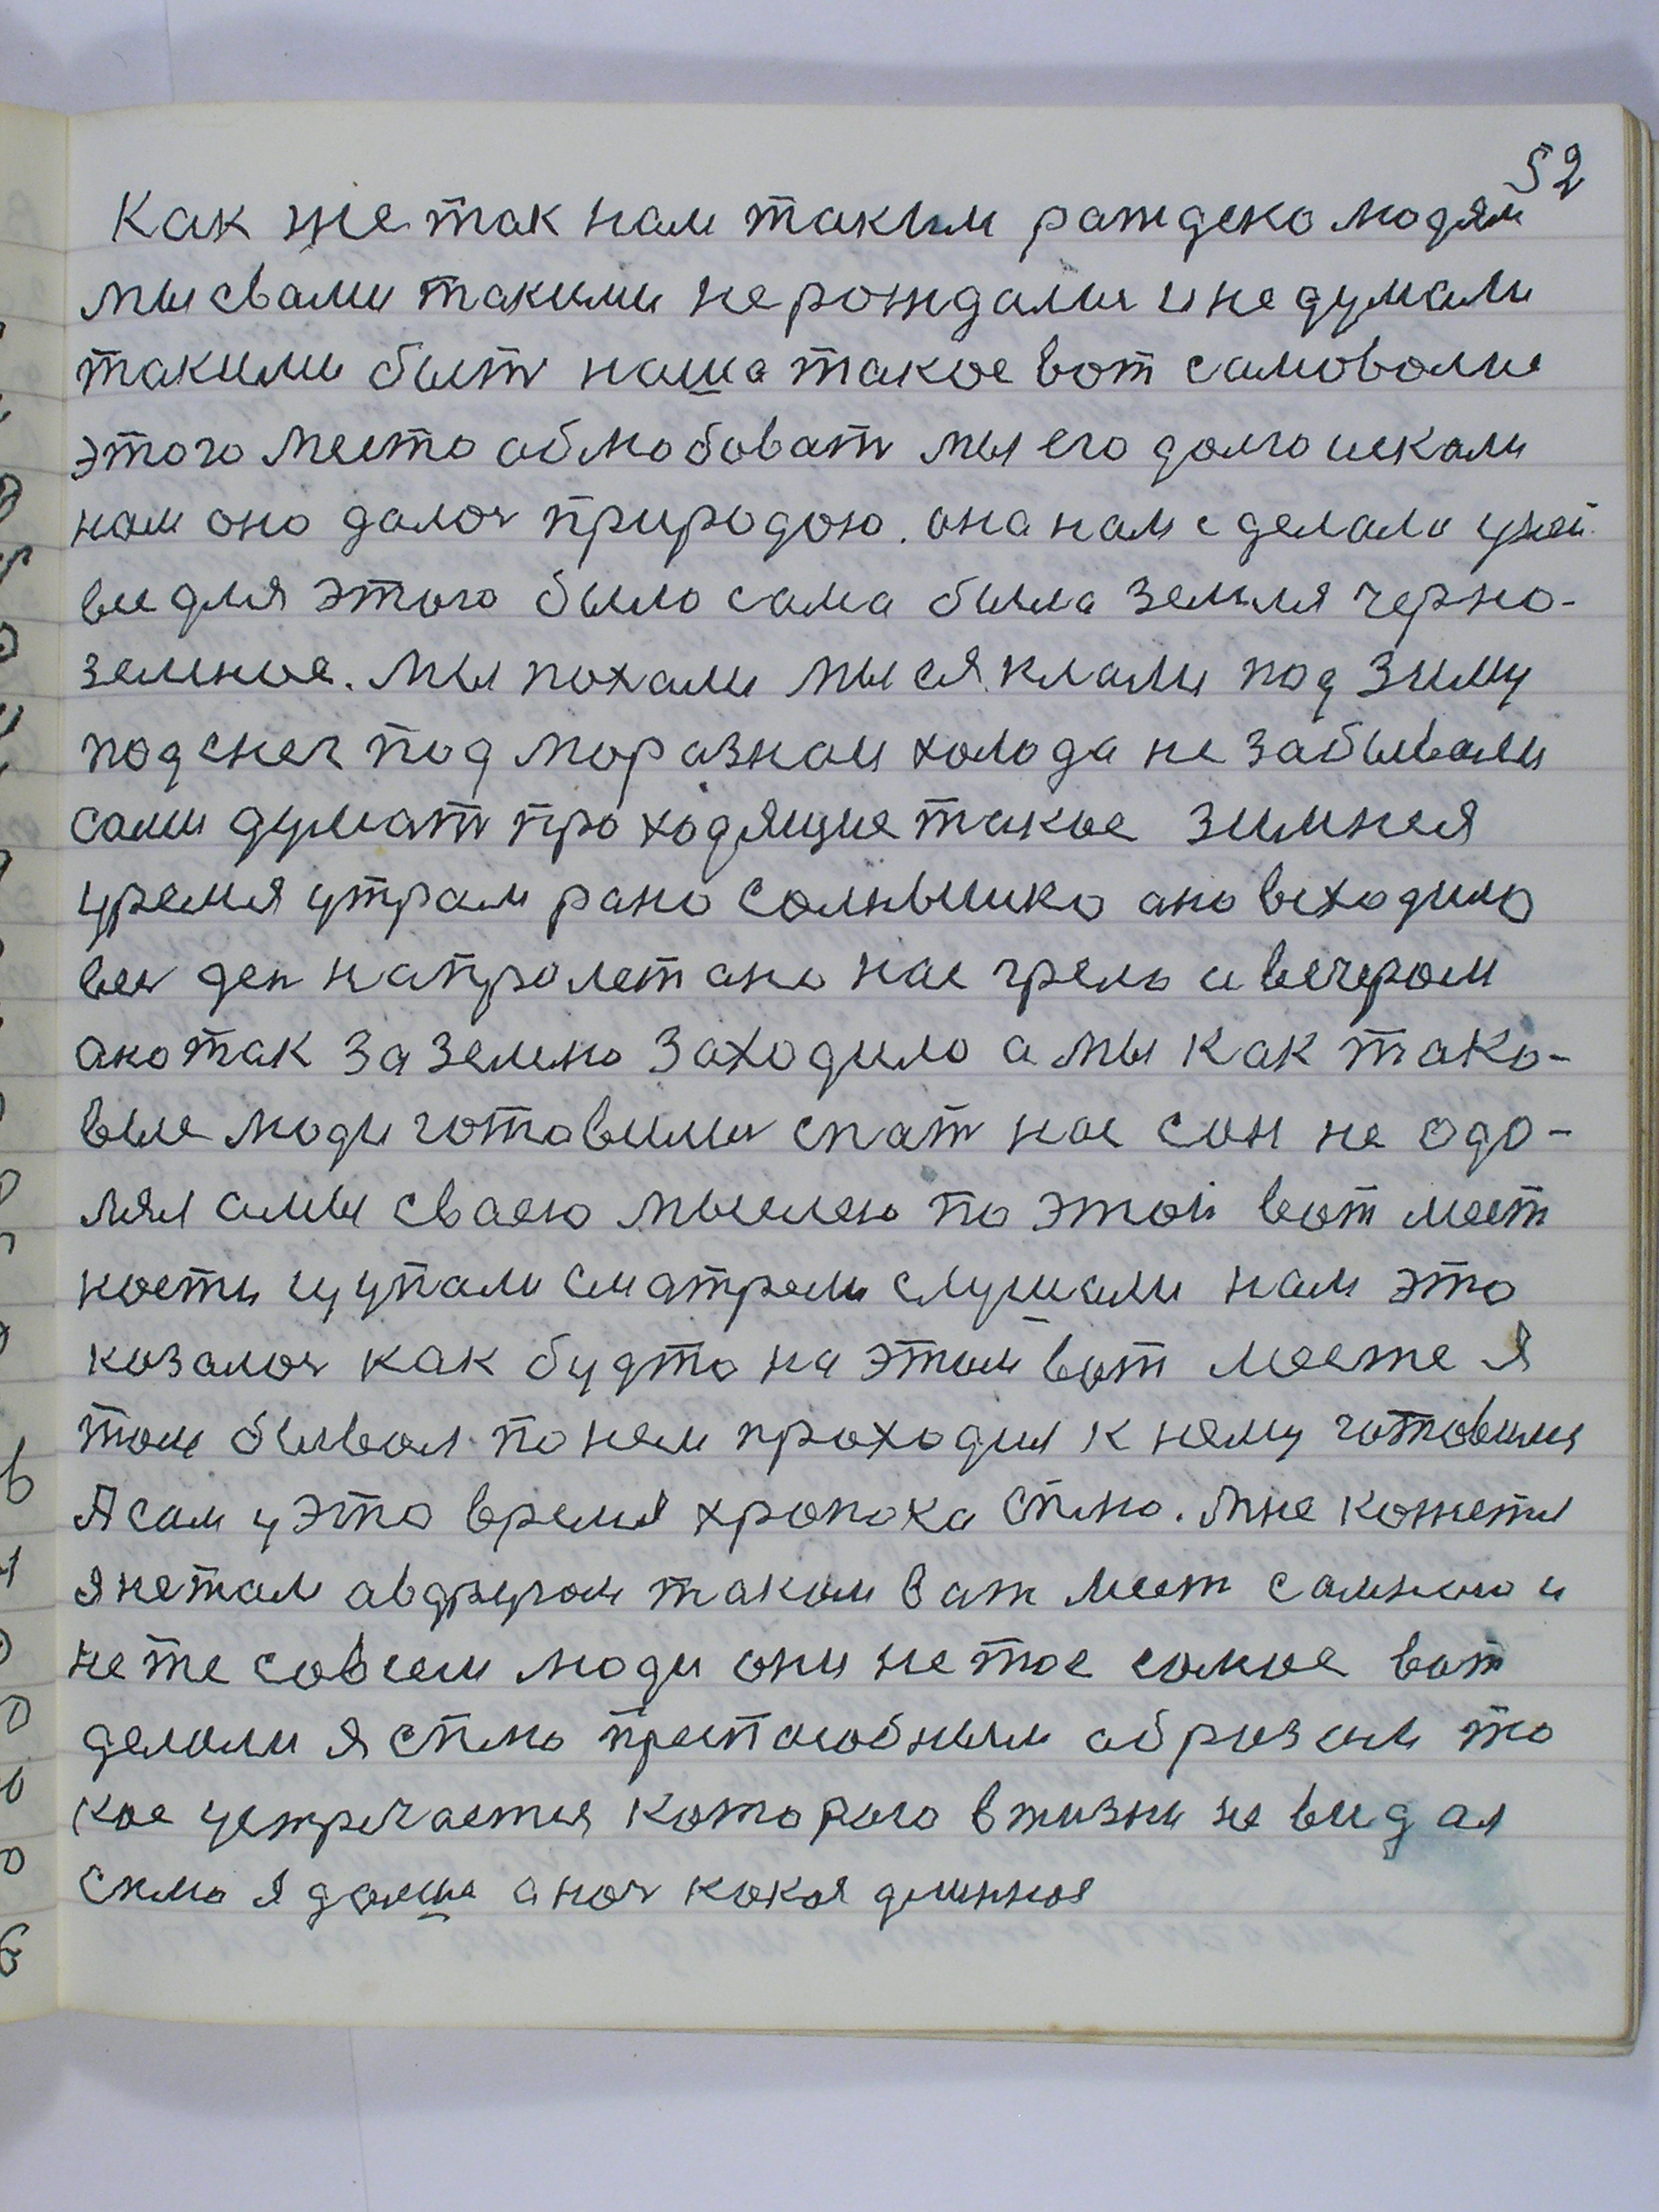 52
Как же так нам таким раждено людям
мы свами такими не рождалис и не думали
такими быт наша такое вот самоволие
этого место облюбоват мы его долго искали
нам оно далос природою. она нам сделала
все для этого было сама была земля черно-
земное. мы похали мы сяяклали под зиму
под снег под моразнаи холода не забывали
сами думат проходящие такое зимнея
уремя утрам рано солнышко ано всходило
вес ден напролет ано нас грело и вечером
ано так за землю заходило а мы как тако-
вые люди готовилис спат нас сон не одо-
лял амы сваею мыслею по этой вот мест
ности щупали сматрели слушали нам это
козалос как будто на этом вот месте я
там бывал по нем проходил к нему готовился
А сам у это время хропока сплю. Мне кожется
я нетам авдругом таком ват мест самною и
не те совсем люди они не тое самое вот
делали я сплю преспасобным образом та
кое устречается которого в жизни не видал
сплю я долше а ноч кокая длинноя